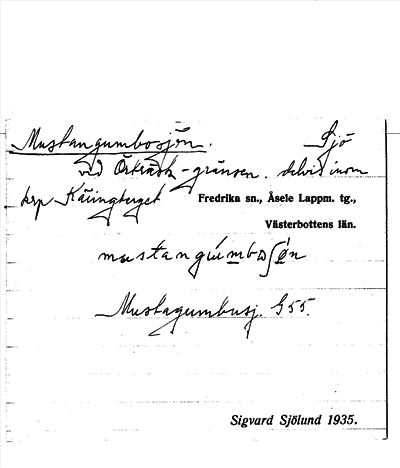 Mustangumbosjön. Sjö
vid Örträsk-gränsen. delvis inom
krp Käringberget Fredrika sn., Åsele Lappm. tg.,
Västerbottens län.
mustangumboʃø̀n
Mustagumbusj. G 55.
Sigvard Sjölund 1935.